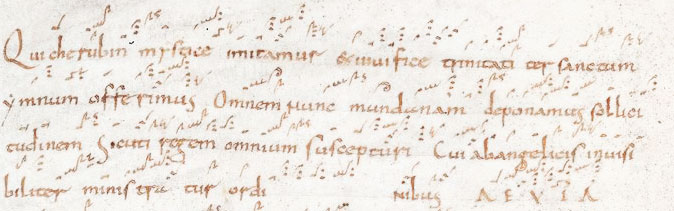 Qui cherubin mystice imitamur & vivifice trinitati ter sanctum
ymnum offerimus Omnem nunc mundanam deponamus sollici
tudinem Sicuti regem omnium suscepturi Cui ab angelicis invisi
biliter ministratur ordi nibus AEVIA